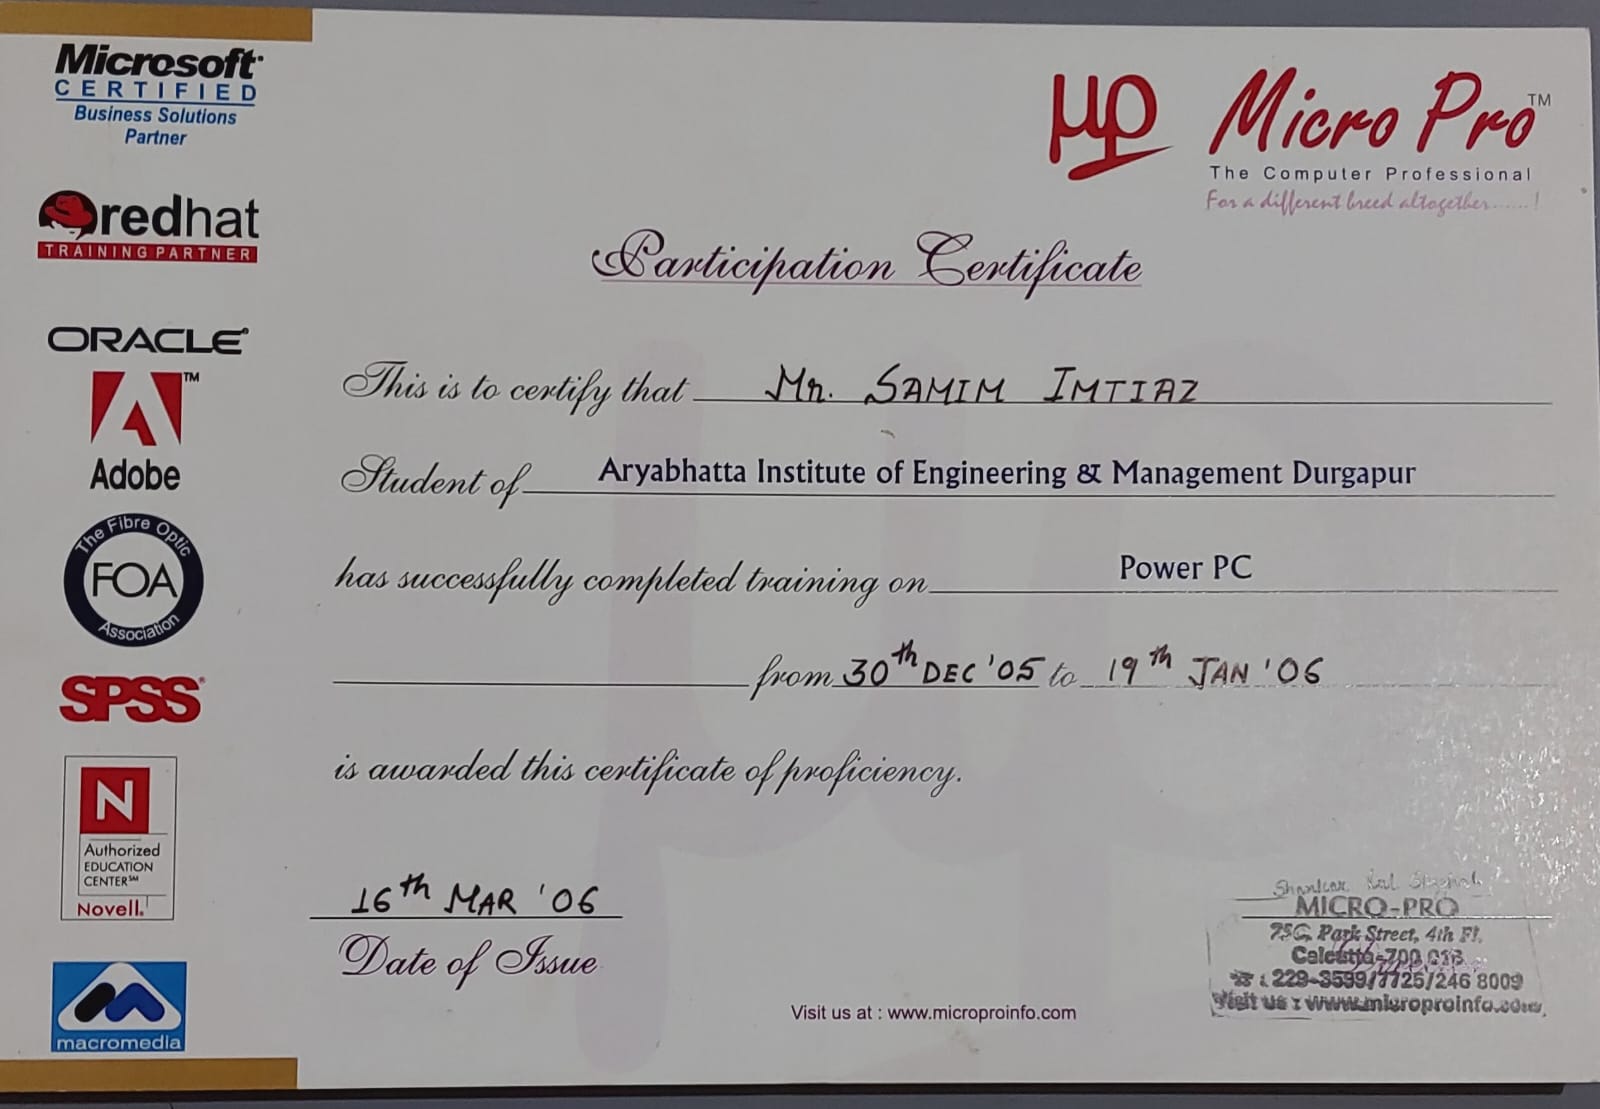 Microsoft
CERTIFIED
Business Solutions
Partner
redhat
TRAINING PARTNER
ORACLE®
Adobe
The Fibre Optic
FOA
Association
SPSS®
N
Authorized
EDUCATION
CENTER℠
Novell.
macromedia
µp Micro Pro™
The Computer Professional
For a different breed altogether......!
Participation Certificate
This is to certify that Mr. SAMIM IMTIAZ
Student of Aryabhatta Institute of Engineering & Management Durgapur
has successfully completed training on Power PC
from 30th DEC '05 to 19th JAN '06
is awarded this certificate of proficiency.
16th MAR '06
Date of Issue
Visit us at : www.microproinfo.com
MICRO-PRO
75C, Park Street, 4th Fl.
Calcutta-700 016
☎ : 229-3599/7725/246 8009
Visit us : www.microproinfo.com